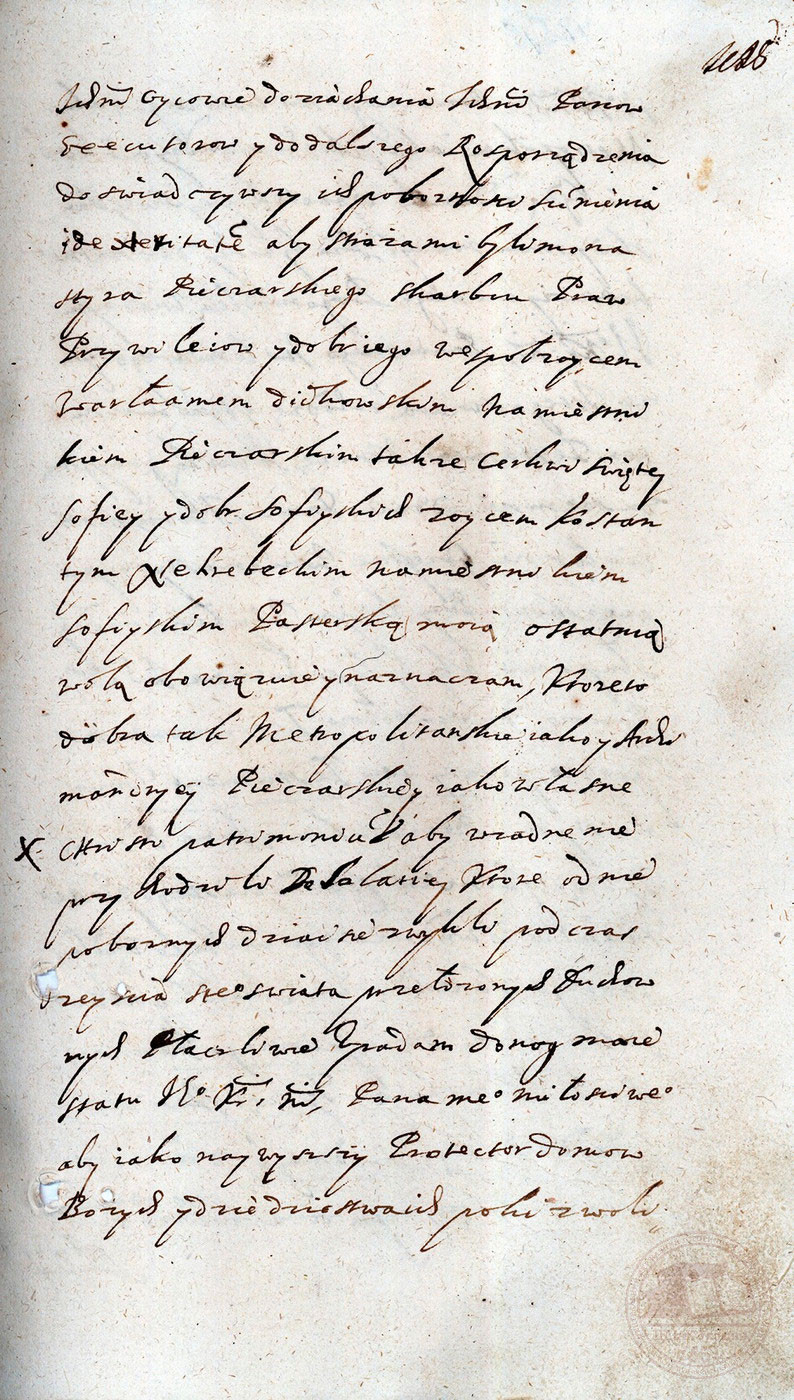 Ichm̃ Oycowie do ziachania Ichm̃ Panow
Executorow y do dalszego Rosporządzenia
doswiadczywszy ich poboznosci Su͂nienia
i dexteritatẽ aby strozami byli mona
styra Pieczarskiego skarbu Praw
Przywileiow y dobr iego wespoł z oycem
Warłaamem Didkowskim Namiestni
kiem Pieczarskim także Cerkwi Swiętey
Sofiey y dobr Sofiyskich z oycem Kostan
tym Nehrebeckim namiestnikiem
Sofiyskim Pasterską moią ostatnią
wolą obowięzuie y naznaczam, Ktore to
dobra tak Metropolitanskie iako y Archi
mandryey Pieczarskiey iako własne
X Christi patrimoniũ aby w zadne nie
przychodzili Desolatiey Ktore od nie
poboznych dziac sie zwykli pod czas
zeyscia z te° swiata przełozonych Duchow
nych Płaczliwie Upadam do nog maie
statu J° Kr. m̃, Pana me° miłosciwe°
aby iako naywyszszy Protector domow
Bozych y dziedzictwa ich poki z woli